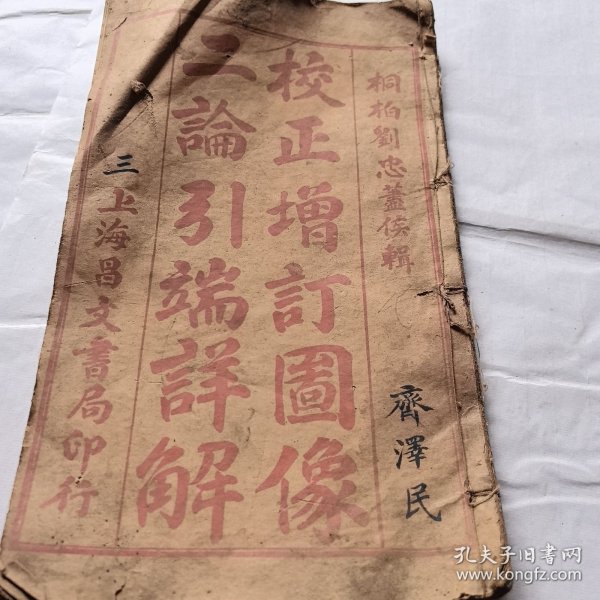 桐柏劉忠藎候輯
齊澤民
校正增訂圖像
二論引端詳解
三
上海昌文書局印行
孔夫子旧书网
www.kongfz.com